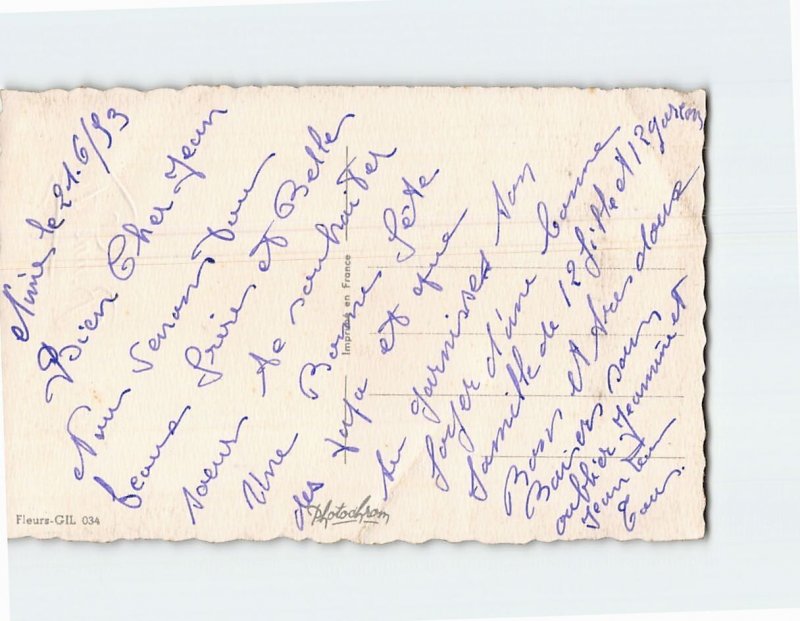 Nimes le 21.6/53
Bien Cher Jean
Nous venons ton
beaux Frère et Belle
soeur te souhaiter
Une Bonne Fête
des et que
tu garnisses ton
foyer d'une bonne
famille de 12 fille et 12 garçons
Bons et très doux
Baisers sans
oublier Jeannine et
Jean
Tous.
Imprimé en France
Fleurs-GIL 034
Photochrom